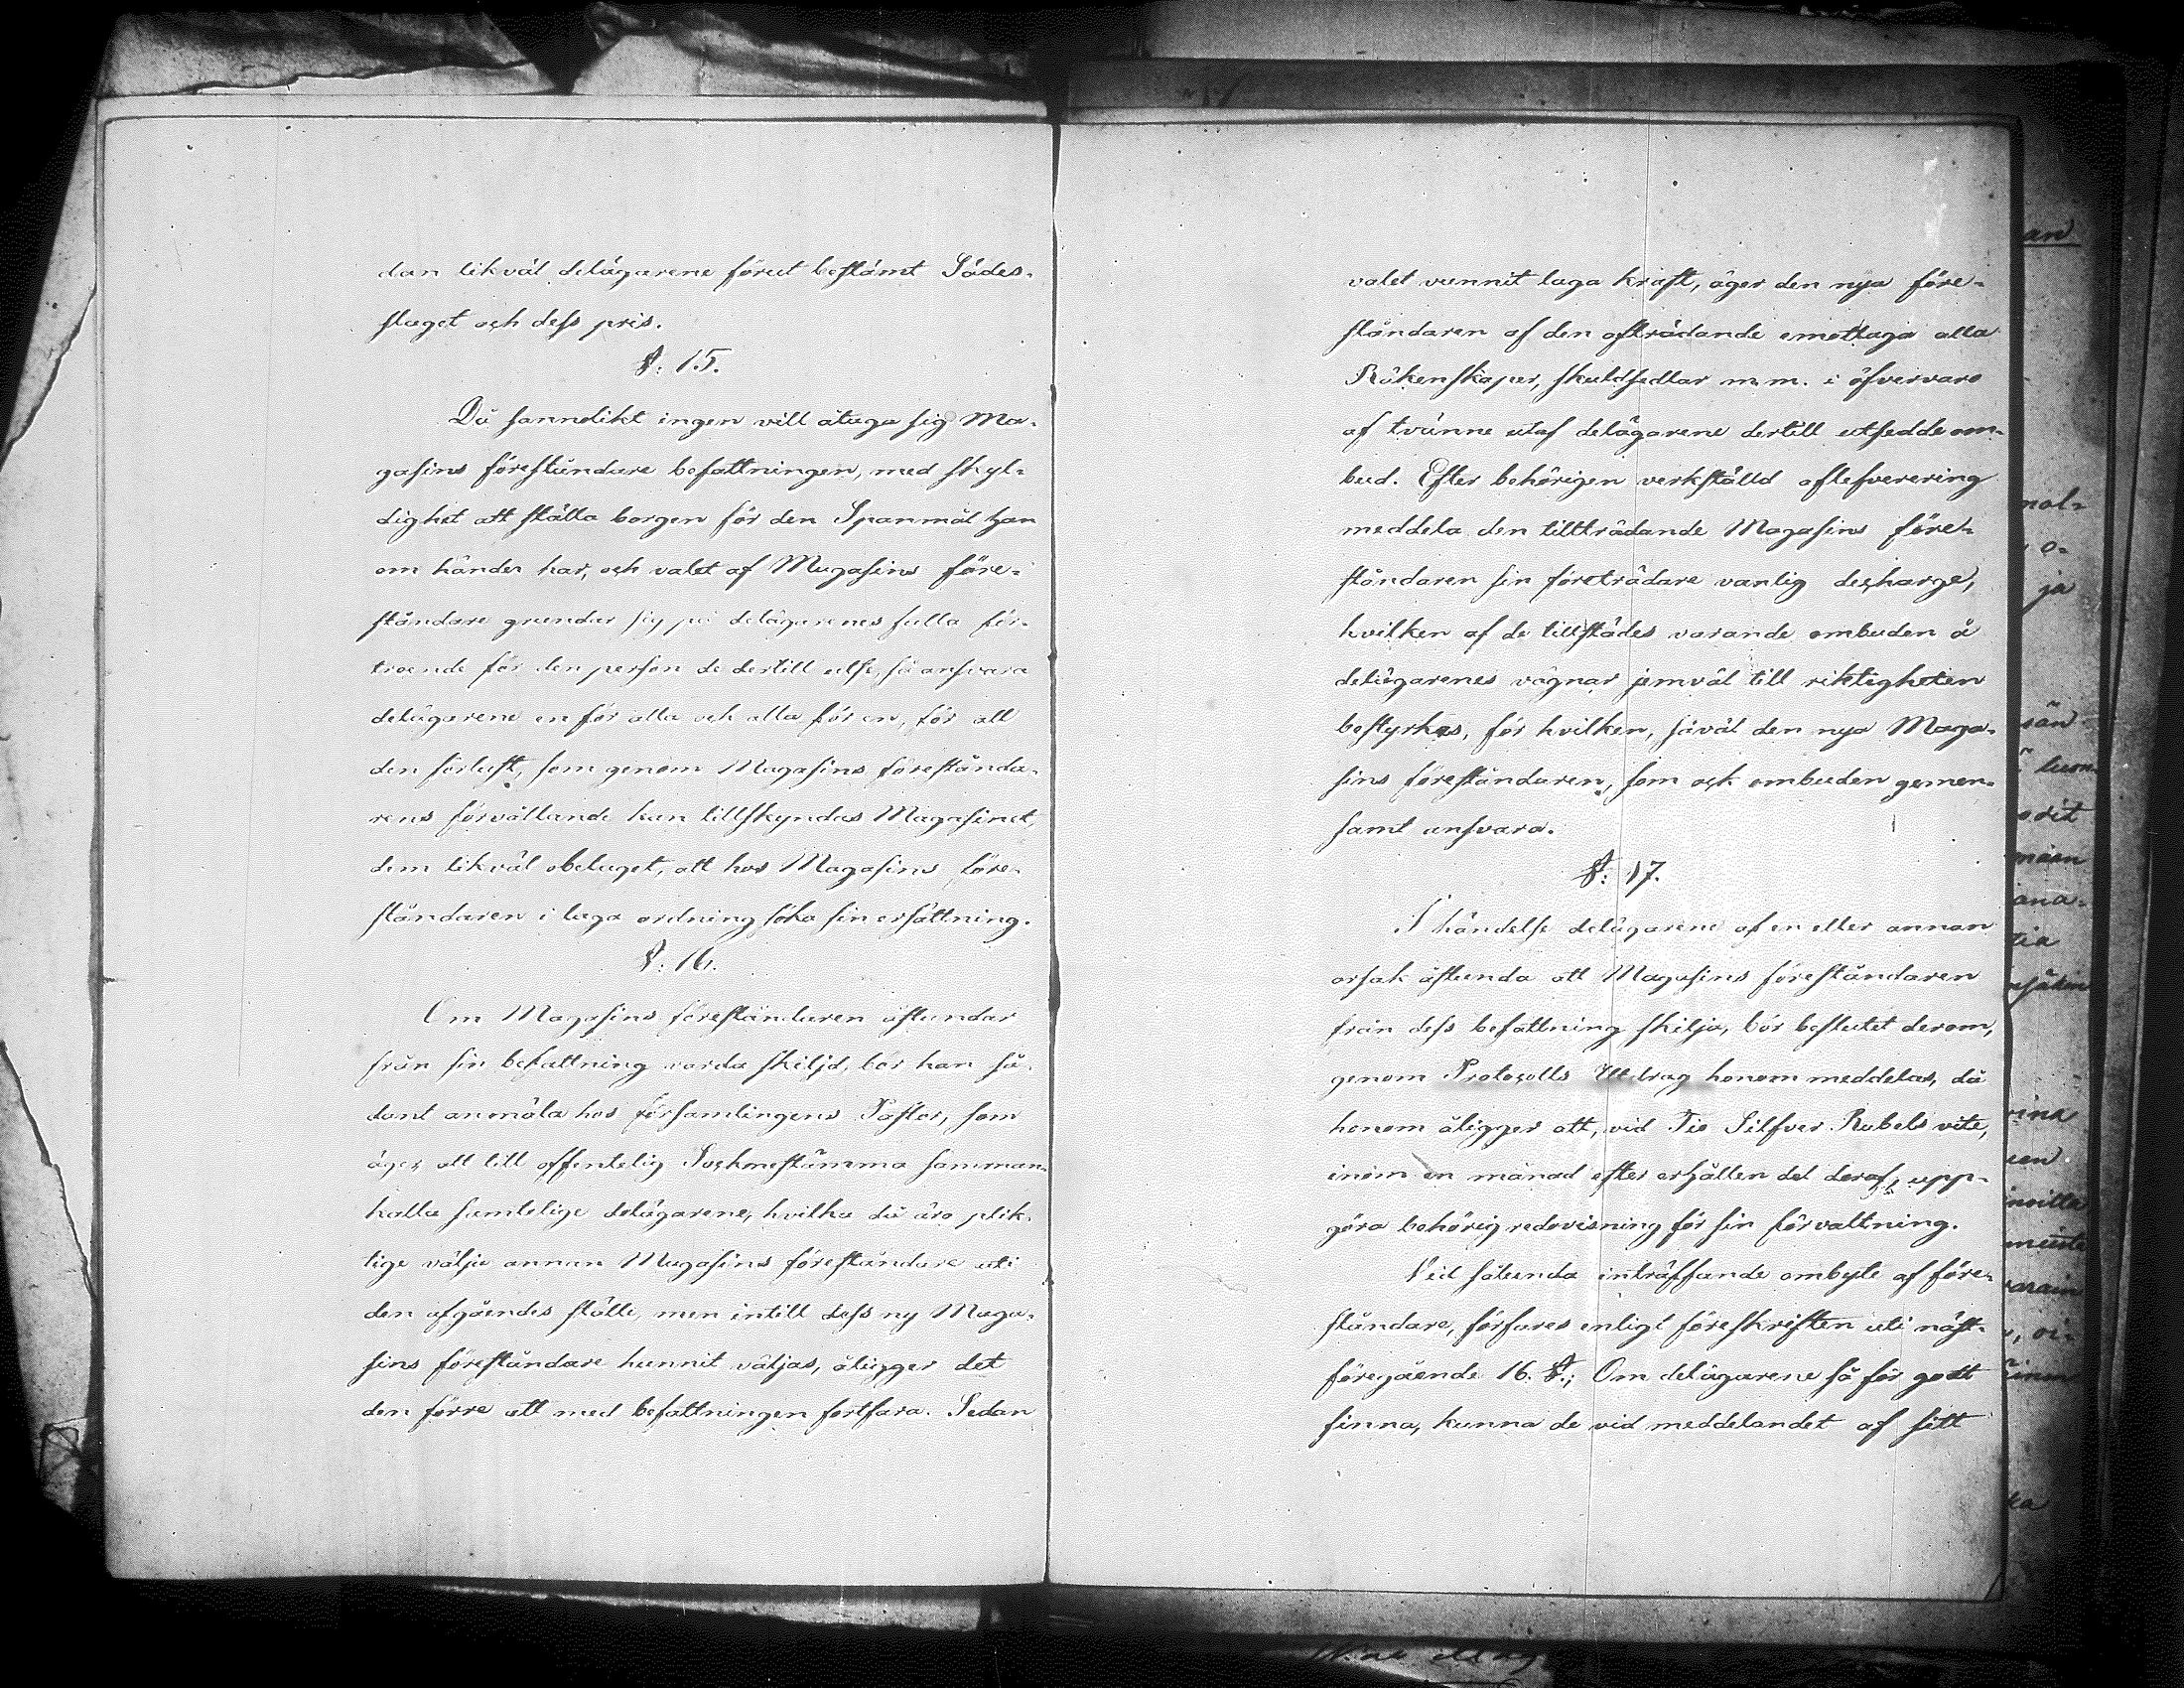 dan likväl delägarene förut bestämt Sädes-
slaget och dess pris.
§: 15.
Då sannolikt ingen vill åtaga sig Ma-
gasins föreståndare befattningen, med skyl-
dighet att ställa borgen för den Spanmål han
om händer har, och valet af Magasins före-
ståndare grundar sig på delägarenes fulla för-
troende för den person de dertill utse, så ansvara
delägarene en för alla och alla för en, för all
den förlust, som genom Magasins föreståndа-
rens förvållande kan tillskyndas Magasinet,
dem likväl obetaget, att hos Magasins före-
ståndaren i laga ordning söka sin ersättning.
§: 16.
Om Magasins föreståndaren åstundar
från sin befattning varda skiljd, bör han så-
dant anmäla hos församlingens Pastor, som
äger att till offentelig Sockenstämma samman-
kalla samtelige delägarene, hvilka då äro plik-
tige välja annan Magasins föreståndare uti
den afgåendes ställe, men intill dess ny Maga-
sins föreståndare hunnit väljas, åligger det
den förre att med befattningen fortfara. Sedan
valet vunnit laga kraft, äger den nya före-
ståndaren af den afträdande emottaga alla
Räkenskaper, skuldsedlar m.m. i öfvervaro
af tvänne utaf delägarene dertill utsedde om-
bud. Efter behörigen verkställd aflefverering
meddela den tillträdande Magasins före-
ståndaren sin företrädare vanlig decharge,
hvilken af de tillstädes varande ombuden å
delägarenes vägnar jemväl till riktigheten
bestyrkes, för hvilken, såväl den nya Maga-
sins föreståndaren, som ock ombuden gemen-
samt ansvara.
§: 17.
I händelse delägarene af en eller annan
orsak åstunda att Magasins föreståndaren
från dess befattning skilja, bör beslutet derom,
genom Protocolls Utdrag honom meddelas, då
honom åligger att, vid Tio Silfver Rubels vite,
inom en månad efter erhållen del deraf, upp-
göra behörig redovisning för sin förvaltning.
Vid sålunda inträffande ombyte af före-
ståndare, förfares enligt föreskriften uti näst-
föregående 16. §.; Om delägarene så för godt
finna, kunna de vid meddelandet af sitt